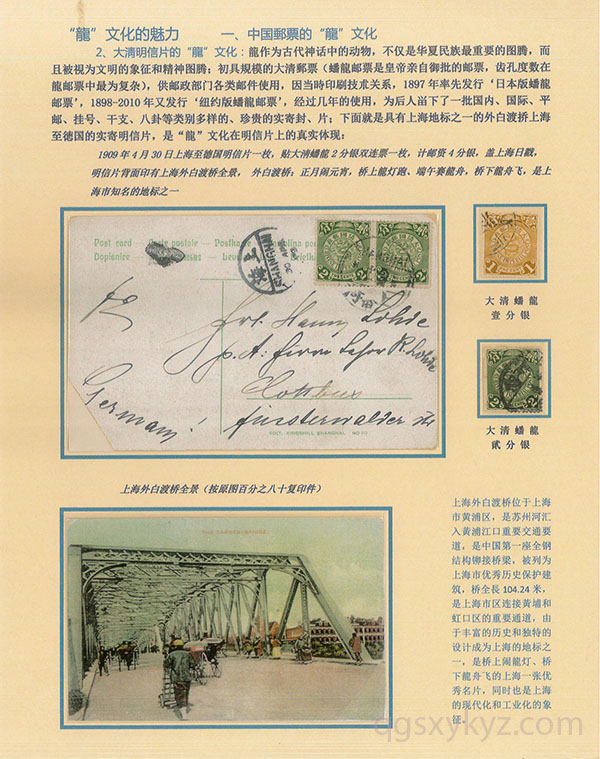 “龍”文化的魅力 一、中国郵票的“龍”文化
2、大清明信片的“龍”文化：龍作为古代神话中的动物，不仅是华夏民族最重要的图腾，而
且被视为文明的象征和精神图腾；初具规模的大清郵票（蟠龍郵票是皇帝亲自御批的邮票，齿孔度数在
龍邮票中最为复杂），供邮政部门各类邮件使用，因当時印刷技术关系，1897 年率先发行‘日本版蟠龍
邮票’，1898-2010 年又发行‘纽约版蟠龍邮票’，经过几年的使用，为后人畄下了一批国内、国际、平
邮、挂号、干支、八卦等类别多样的、珍贵的实寄封、片；下面就是具有上海地标之一的外白渡挢上海
至德国的实寄明信片，是“龍”文化在明信片上的真实体现：
1909 年 4 月 30 日上海至德国明信片一枚，贴大清蟠龍 2 分银双连票一枚，计邮资 4 分银，盖上海日戳，
明信片背面印有上海外白渡桥全景， 外白渡桥：正月闹元宵，桥上龍灯跑、端午赛龍舟，桥下龍舟飞，是上
海市知名的地标之一
Post card
Carte postale
Postkarte
Dopisnice
SHANGHAI
30
APR
09
2
2
1
大 清 蟠 龍
壹 分 银
Frl. Hanny Lohde
p. A. Firma
R. Lohde
Cottbus
Fürsterwalder Str
Germany!
SHANGHAI
2
大 清 蟠 龍
贰 分 银
上海外白渡桥全景（按原图百分之八十复印件）
THE GARDEN BRIDGE
上海外白渡桥位于上海
市黄浦区，是苏州河汇
入黄浦江口重要交通要
道，是中国第一座全钢
结构铆接桥梁，被列为
上海市优秀历史保护建
筑，桥全長 104.24 米，
是上海市区连接黄埔和
虹口区的重要通道，由
于丰富的历史和独特的
设计成为上海的地标之
一，是桥上闹龍灯、桥
下龍舟飞的上海一张优
秀名片，同时也是上海
的现代化和工业化的象
征。
qgsxykyz.com